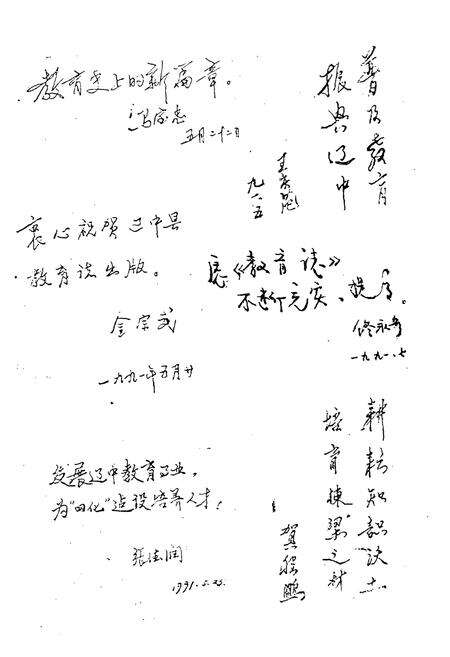 教育史上的新篇章。
五月二十二日
普及教育
振兴辽中
九一.五
衷心祝贺辽中县
教育志出版。
金宗武
一九九一年五月廿
愿《教育志》
不断充实、提高。
佟永
一九九一.七
发展辽中教育事业，
为“四化”建设培养人才！
张
1991.5.25.
耕耘知识沃土
培育栋梁之材
贺
鹏